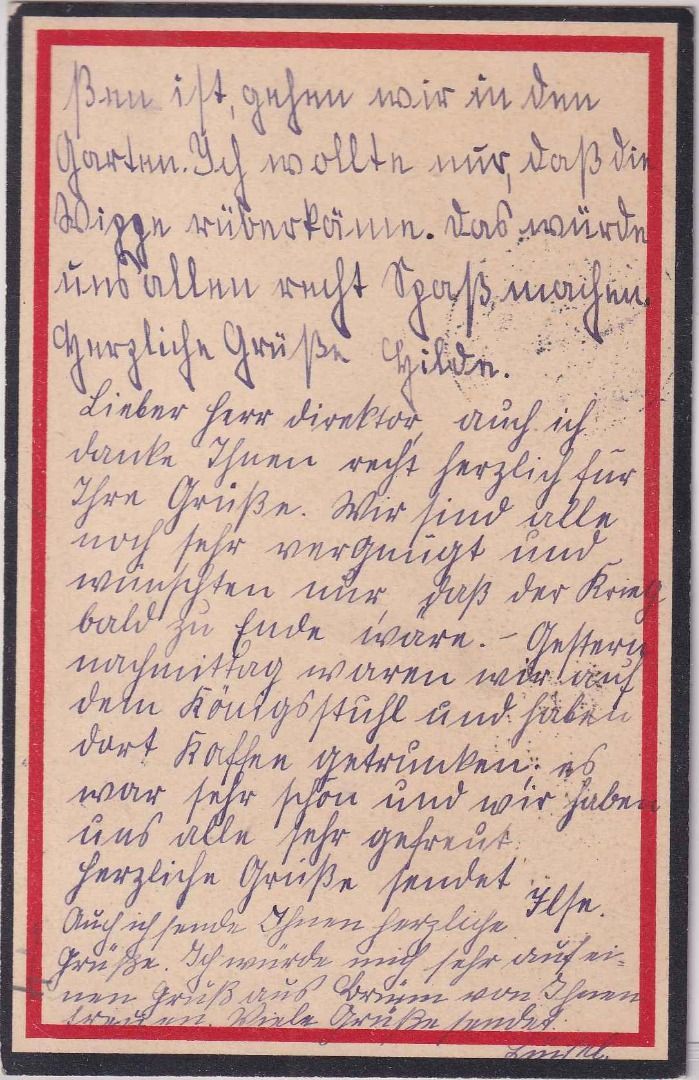 ßen ist, gehen wir in den
Garten. Ich wollte nur, daß die
Wippe rüberkäme. Das würde
uns allen recht Spaß machen.
Herzliche Grüße Hilde.
Lieber Herr Direktor, auch ich
danke Ihnen recht herzlich für
Ihre Grüße. Wir sind alle
noch sehr vergnügt und
wünschten nur, daß der Krieg
bald zu Ende wäre. - Gestern
nachmittag waren wir auf
dem Königsstuhl und haben
dort Kaffee getrunken. es
war sehr schön und wir haben
uns alle sehr gefreut.
Herzliche Grüße sendet Ilse.
Auch ich sende Ihnen herzliche
Grüße. Ich würde mich sehr auf ei-
nen Gruß aus von Ihnen
freuen. Viele Grüße sendet